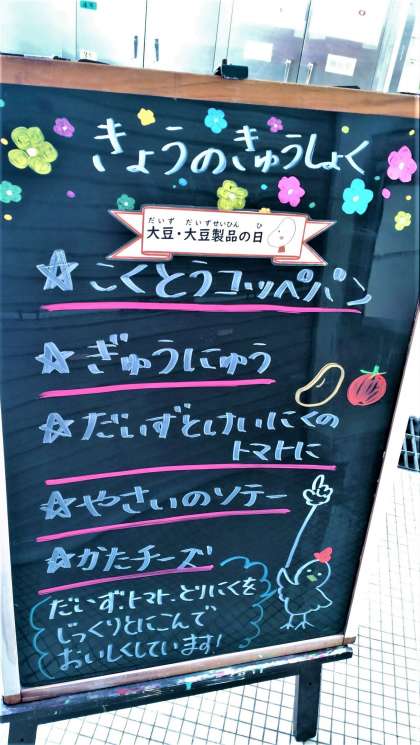 きょうのきゅうしょく
だいず だいずせいひん ひ
大豆・大豆製品の日
☆こくとうコッペパン
☆ぎゅうにゅう
☆だいずとけいにくの
トマトに
☆やさいのソテー
☆かたチーズ
だいず、トマト、とりにくを
じっくりとにこんで
おいしくしています!